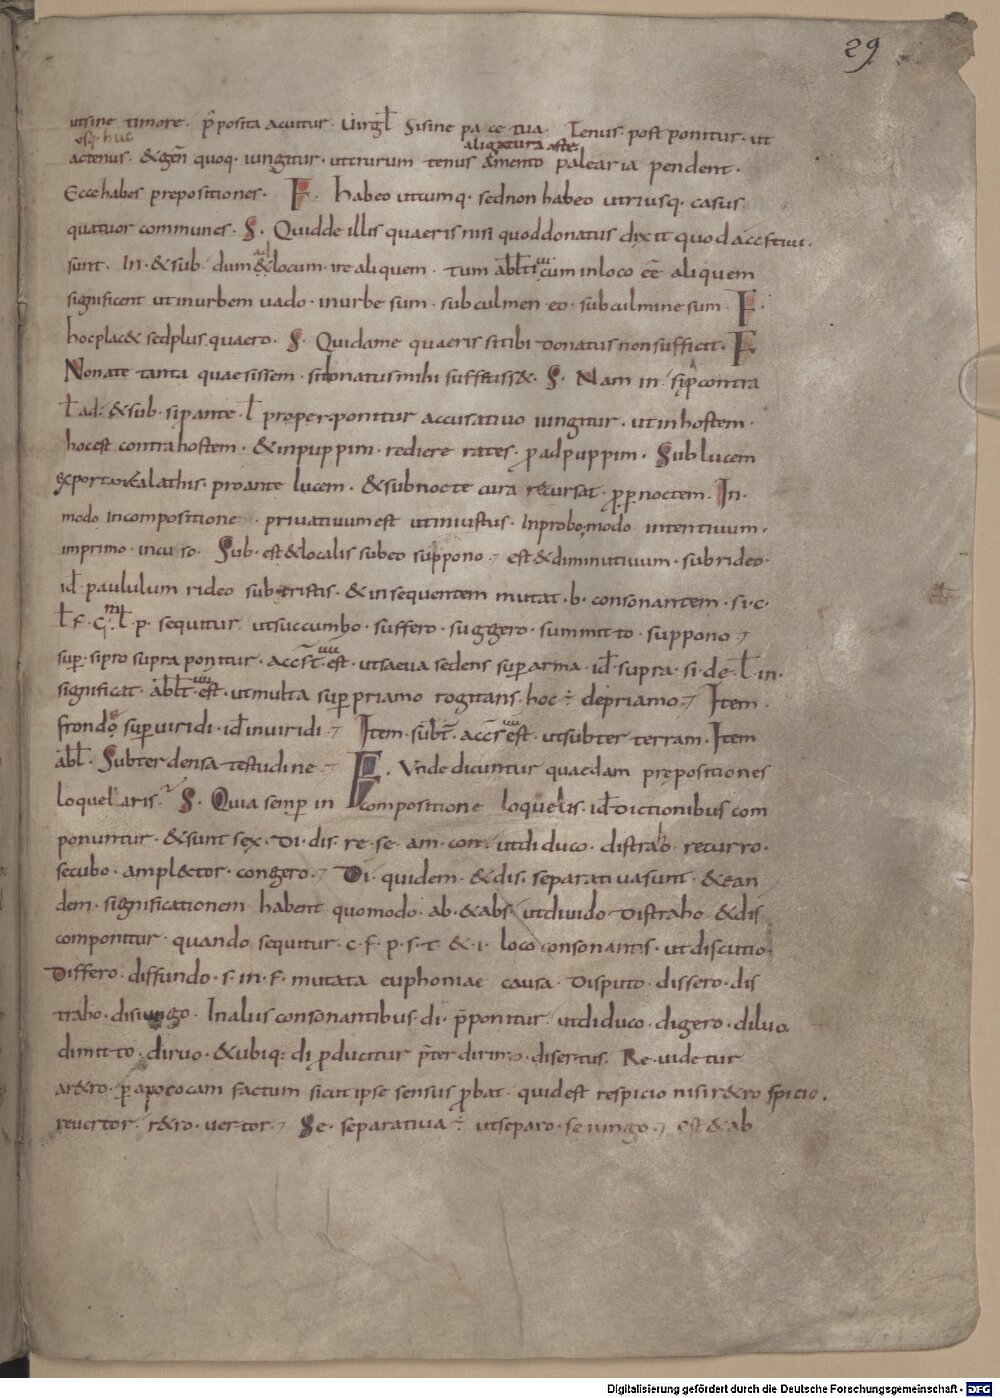 29
ut sine timore. p̄posita acuitur. Uirgł Si sine pace tua. Tenus postponitur. ut
usq; huc
aligatura aste
actenus. & geñ quoq. iungitur. ut crurum tenus amento palearia pendent.
Ecce habes prepositiones. F. habeo utcumq. sed non habeo utriusq. casus
quatuor communes. S. Quid de illis quaeris nisi quod donatus dixit quod accstiui.
sunt. In. & sub. dum ad locum. ire aliquem. tum abłti cum in loco eē aliquem
significent ut in urbem uado. in urbe sum. sub culmen eo. sub culmine sum. F.
hoc plac& sed plus quaero. S. Quid a me quaeris si tibi donatus non sufficit. F
Non a te tanta quaesissem. si donatus mihi suffeciss&. S. Nam in. si p contra
ł ad. & sub. si p ante. ł prope. ponitur accusatiuo iungitur. ut in hostem.
hoc est contra hostem. & in puppim. rediere rates. p ad puppim. Sub lucem
exportant calathis. pro ante lucem. & sub nocte cura recursat. p p noctem. In.
modo in compositione. priuatiuum est ut iniustus. Inprobo. modo intentiuum.
imprimo. incuso. Sub. est & localis subeo suppono. est & diminutiuum. subrideo.
id paululum rideo subtristis. & in sequentem mutat. b. consonantem. si. c.
ł f. g. m ł. p. sequitur. ut succumbo. suffero. suggero. summitto. suppono.
sup. si pro supra ponitur. accst. uu est. ut saeua sedens sup arma. id supra. si. de. ł in.
significat. abłt. uu est. ut multa sup priamo rogitans. hoc ÷ de priamo. Item.
fronde sup uiridi. id in uiridi. Item. subt. accs uu est. ut subter terram. Item
abł. Subter densa testudine. F. Unde dicuntur quaedam prepositiones
loquelaris. S. Quia semp in compositione loquelis. id dictionibus com
ponuntur. & sunt sex. di. dis. re. se. am. con. ut diduco. distraho. recurro.
secubo. ampl&ctor. congero. Di. quidem. & dis. separatiua sunt. & ean
dem. significationem habent quomodo ab. & abs. ut diuido distraho. & dis
componitur. quando sequitur. c. f. p. s. t. & i. loco consonantis. ut discutio.
Differo. diffundo. s. in. f. mutata euphoniae causa. disputo. dissero. dis
traho. disiungo. In aliis consonantibus. di. p̄ponitur. ut diduco. digero. diluo.
dimitto. diruo. & ubiq: di pducitur p̄ter dirimo. disertus. Re. uidetur
a r&ro. p apocopam factum sicut ipse sensus pbat. quid est respicio nisi r&ro spicio.
reuertor. r&ro. uertor. Se. separatiua ÷ ut separo. seiungo. est & ab
Digitalisierung gefördert durch die Deutsche Forschungsgemeinschaft - DFG